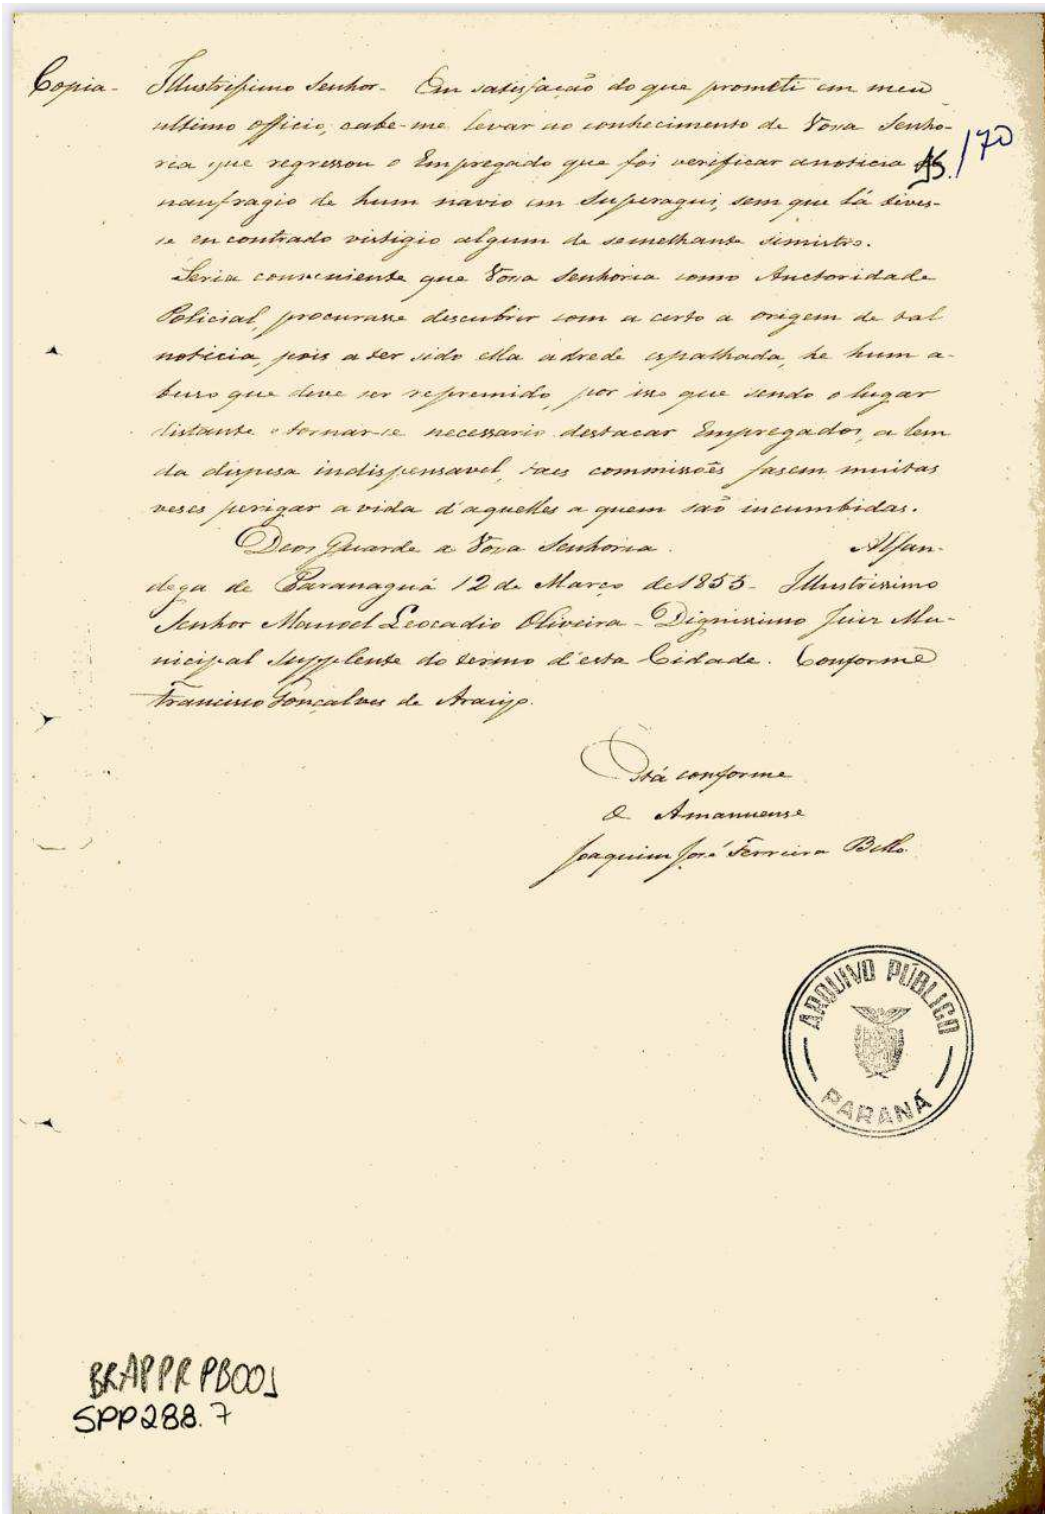 Copia - Illustrissimo Senhor - Em satisfação do que prometti em meu
ultimo officio, cabe-me levar ao conhecimento de Vossa Senho-
ria que regressou o Empregado que foi verificar a noticia do
170
naufragio de hum navio em Superagui, sem que lá tives-
se encontrado vistigio algum de semelhante sinistro.
Seria conveniente que Vossa Senhoria como Auctoridade
Policial, procurasse descubrir com acerto a origem de tal
noticia, pois a ter sido ella adrede espalhada, he hum a-
buso que deve ser repremido, por isso que sendo o lugar
distante e tornar-se necessario destacar Empregados, alem
da dispesa indispensavel, taes commissões fasem muitas
veses perigar a vida d'aquelles a quem são incumbidas.
Deos Guarde a Vossa Senhoria. Alfan-
dega de Paranaguá 12 de Março de 1855 - Illustrissimo
Senhor Manoel Leocadio Oliveira - Dignissimo Juiz Mu-
nicipal Supplente do termo d'esta Cidade. Conforme
Francisco Gonçalves de Araujo.
Está conforme
O Amanuense
Joaquim José Ferreira Bello.
ARQUIVO PÚBLICO
PARANÁ
BRAPPR PB001
SPP288.7